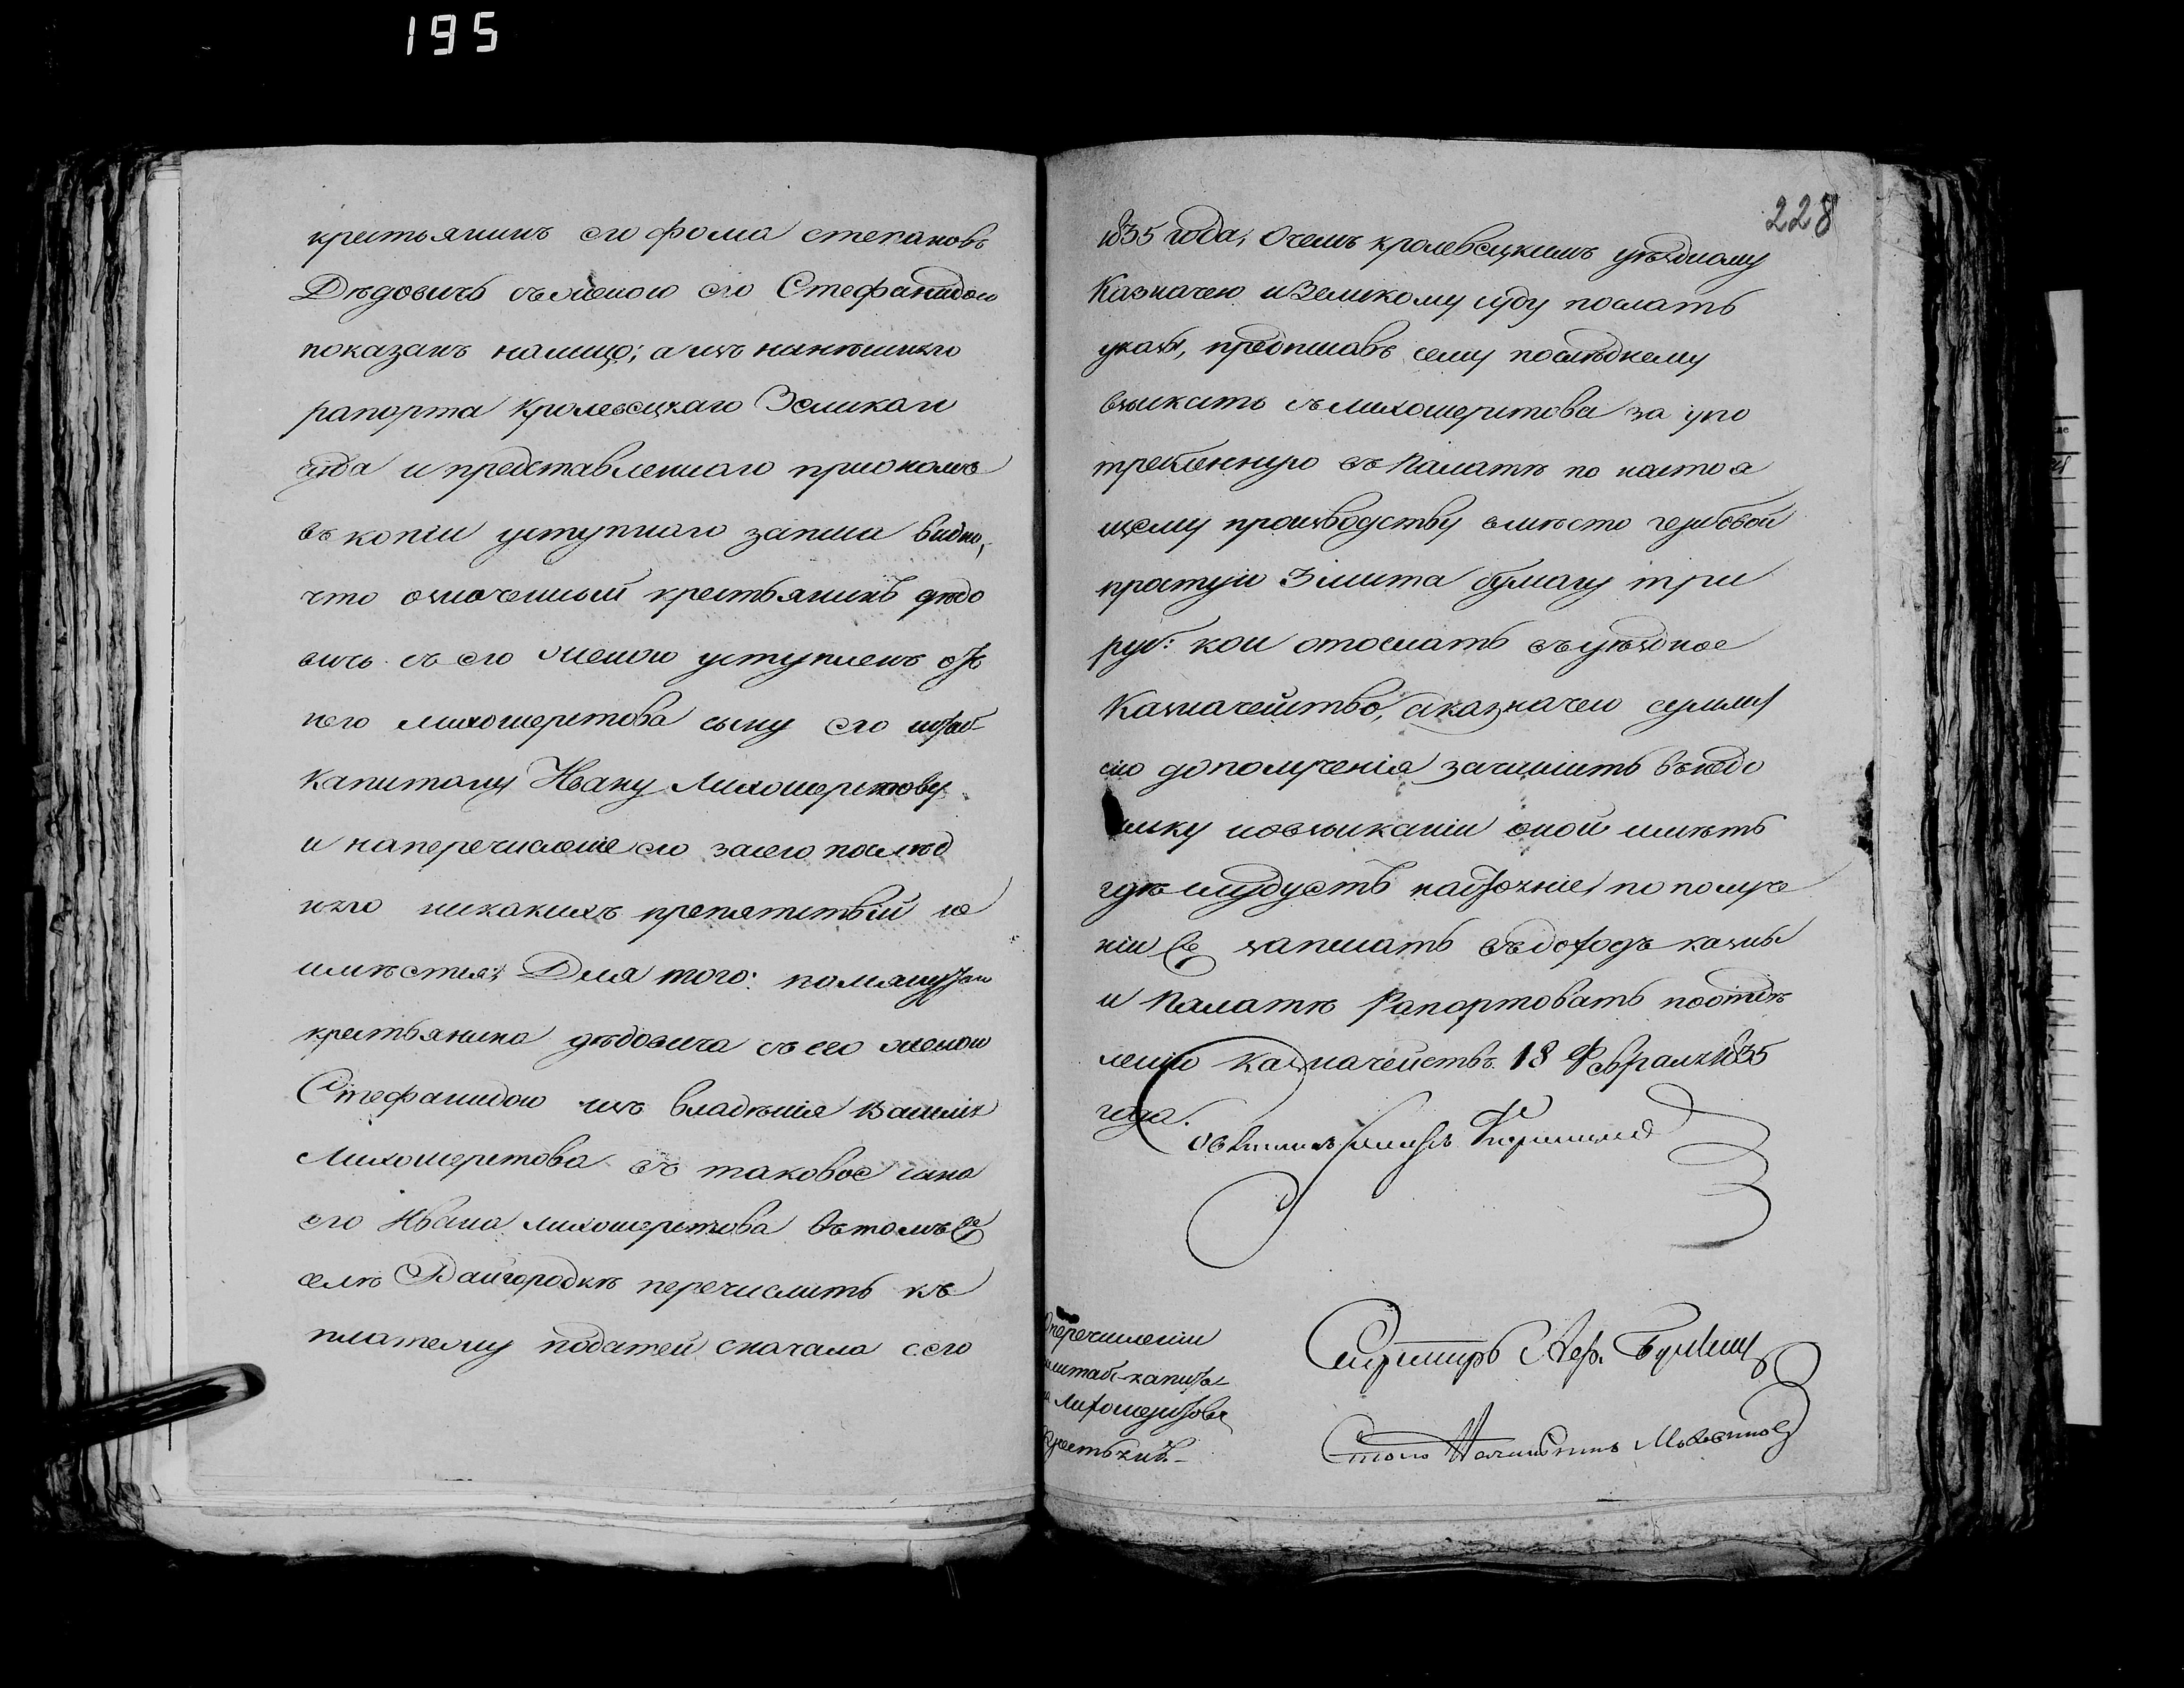 195
крестьянинъ его Фома Степановъ
Дѣдовичъ съ женою его Стефанидою
показанъ налицо; а изъ нынѣшняго
рапорта Кролевецкаго Земскаго
суда и представленнаго при ономъ
въ копіи уступнаго запиша видно,
что означенный крестьянинъ Дѣдо
вичъ съ его женою уступленъ отъ
него Лихошерстова сыну его штаб-
Капитану Ивану Лихошерстову
и на перечисленіе его за сего послѣд
няго никакихъ препятствій не
имѣется; Для того: помянутаго
крестьянина Дѣдовича съ его женою
Стефанидою изъ владѣнія
Лихошерстова въ таковое сына
его Ивана Лихошерстова въ томъ же
селѣ Райгородкѣ перечислить къ
платежу податей сначала сего
228
1835 года, о чемъ Кролевецкимъ уѣздному
Казначею и Земскому суду послать
указы, предписавъ сему послѣднему
взыскать съ Лихошерстова за упо
требленную въ Палатѣ по настоя
щему производству вмѣсто гербовой
простую 3 листа бумагу три
руб: кои отослать въ уѣздное
Казначейство, а казначею сумму
сію до полученія зачислить въ недо
имку и о взысканіи оной имѣть
гдѣ слѣдуетъ настояніе, по получе
ніи же записать въ доходъ казны
и Палатѣ рапортовать по отдѣ
ленію Казначействъ. 18 Февраля 1835
года.
О перечисленіи
штабс-капита
Лихошерстова
Крестьянъ
Столо Начальникъ